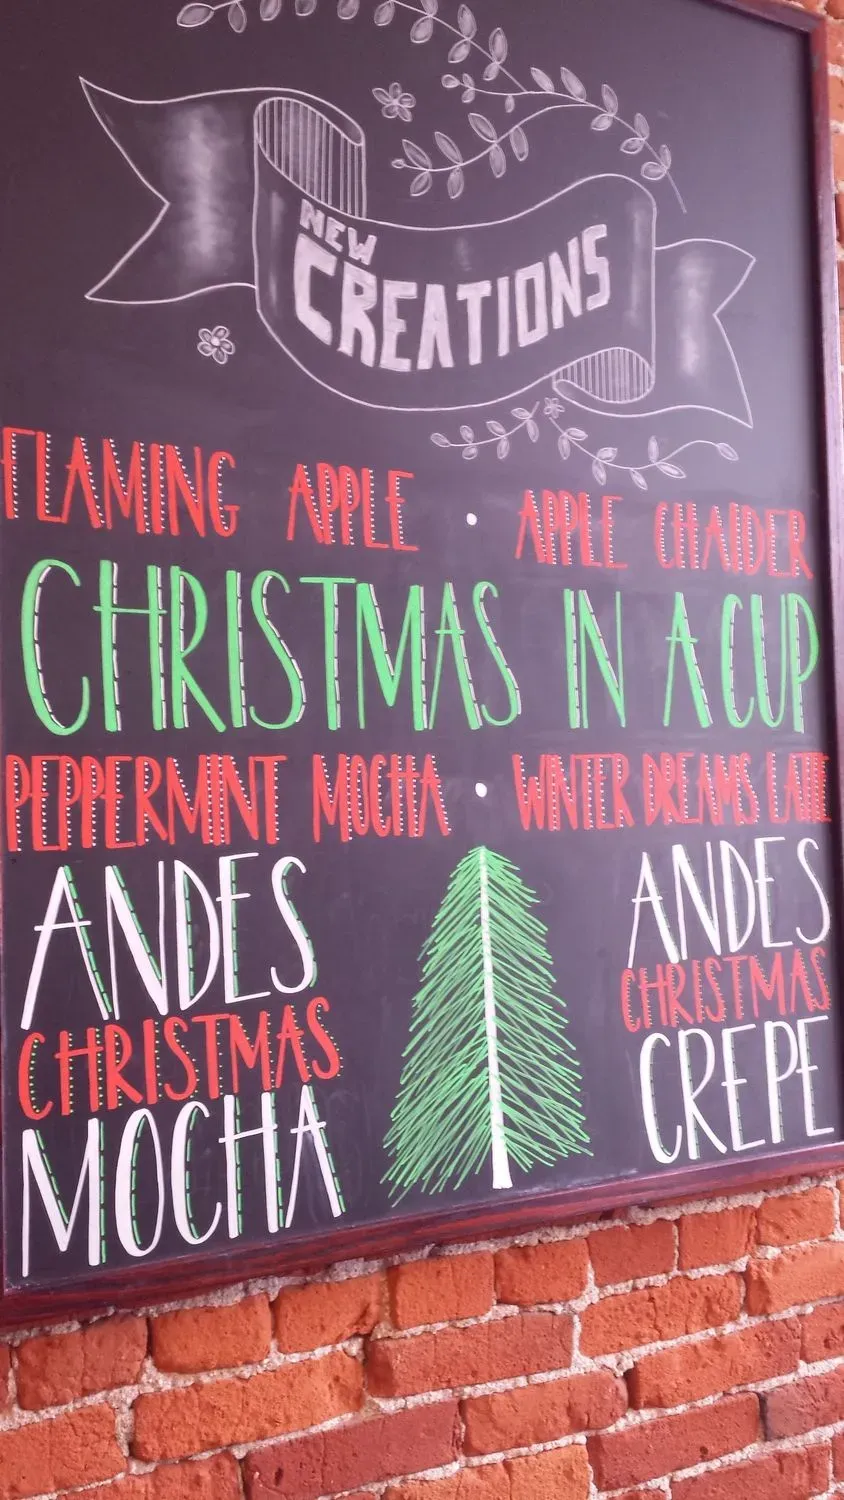 NEW
CREATIONS
FLAMING APPLE • APPLE CHAIDER
CHRISTMAS IN A CUP
PEPPERMINT MOCHA • WINTER DREAMS LATTE
ANDES
CHRISTMAS
MOCHA
ANDES
CHRISTMAS
CREPE